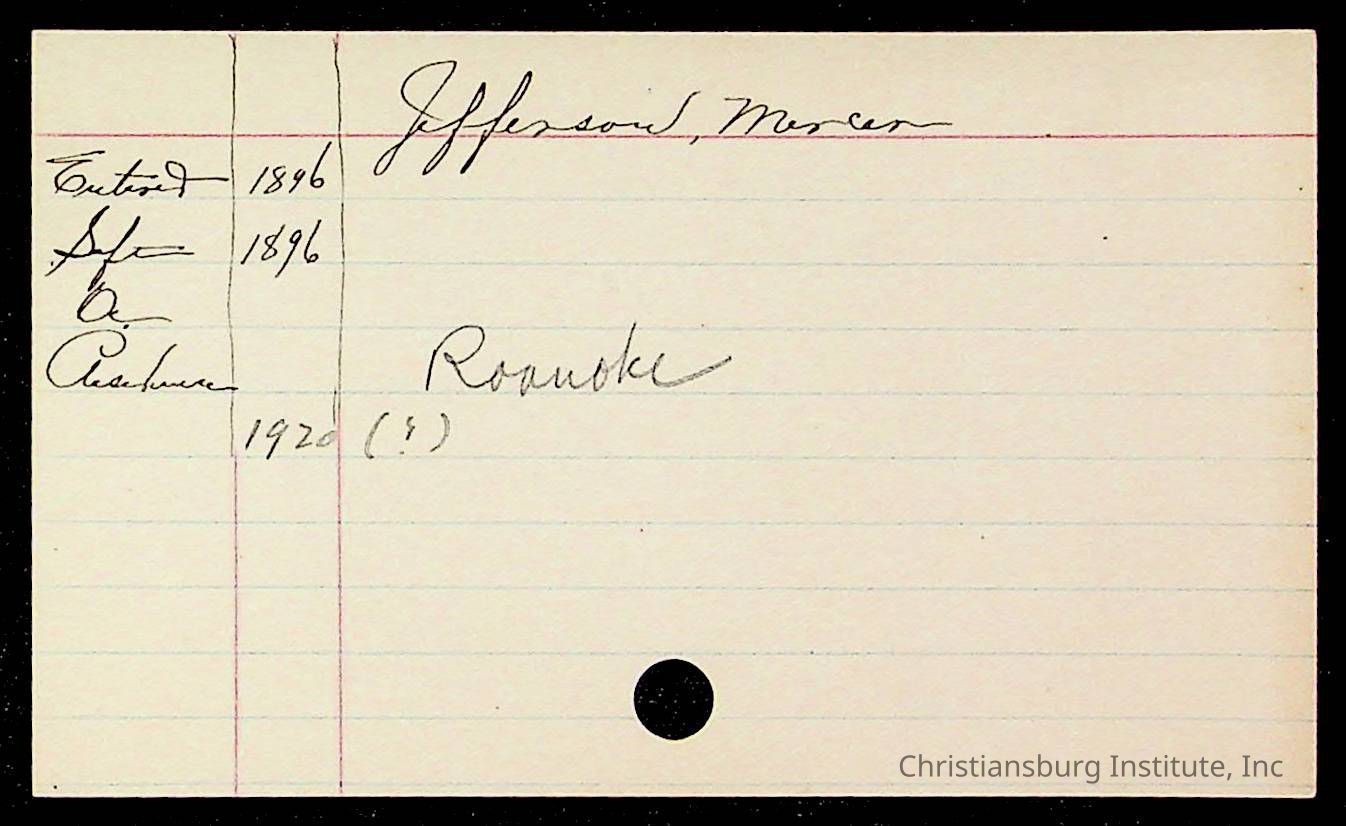 Jefferson, Mercer
Entered 1896
Left 1896
O.
Address Roanoke
1920 (?)
Christiansburg Institute, Inc